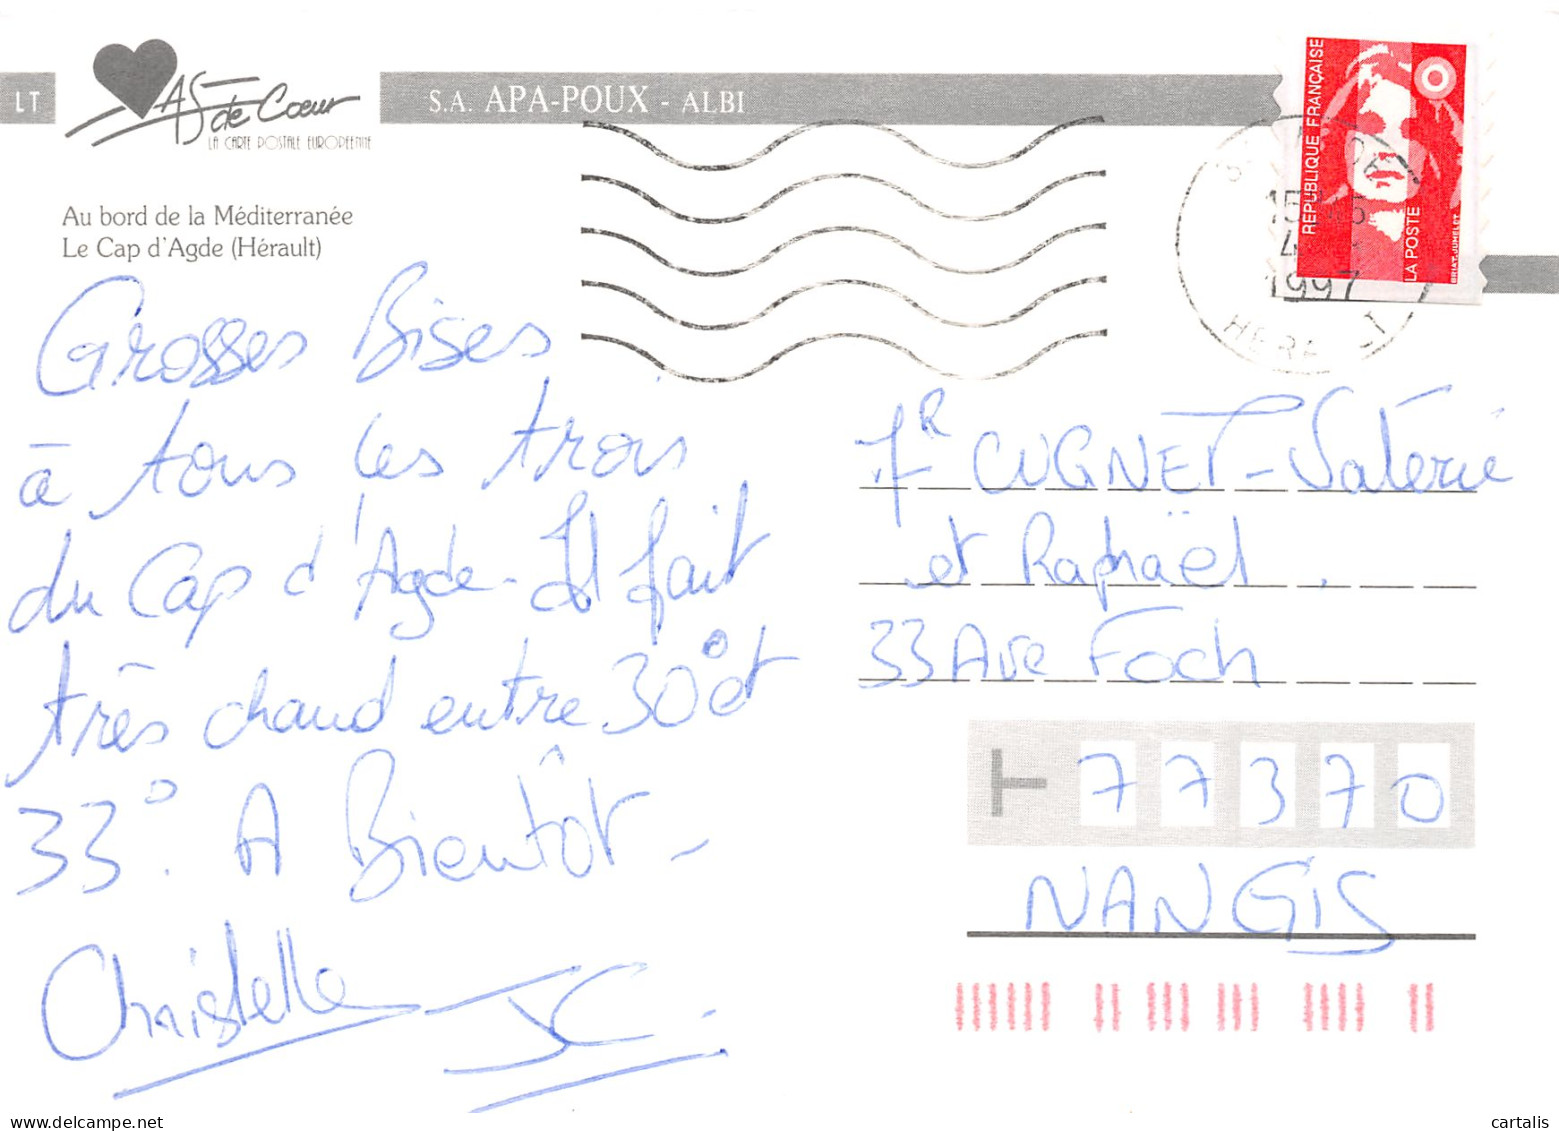 LT
As de Cœur
LA CARTE POSTALE EUROPÉENNE
S.A. APA-POUX - ALBI
RÉPUBLIQUE FRANÇAISE
LA POSTE
1997
Au bord de la Méditerranée
Le Cap d'Agde (Hérault)
Grosses Bises
à tous les trois
du Cap d'Agde - Il fait
très chaud entre 30° et
33°. A Bientôt -
Christelle JC.
CUGNET - Valérie
et Raphaël.
33 Ave Foch
77370
NANGIS
delcampe.net
cartalis